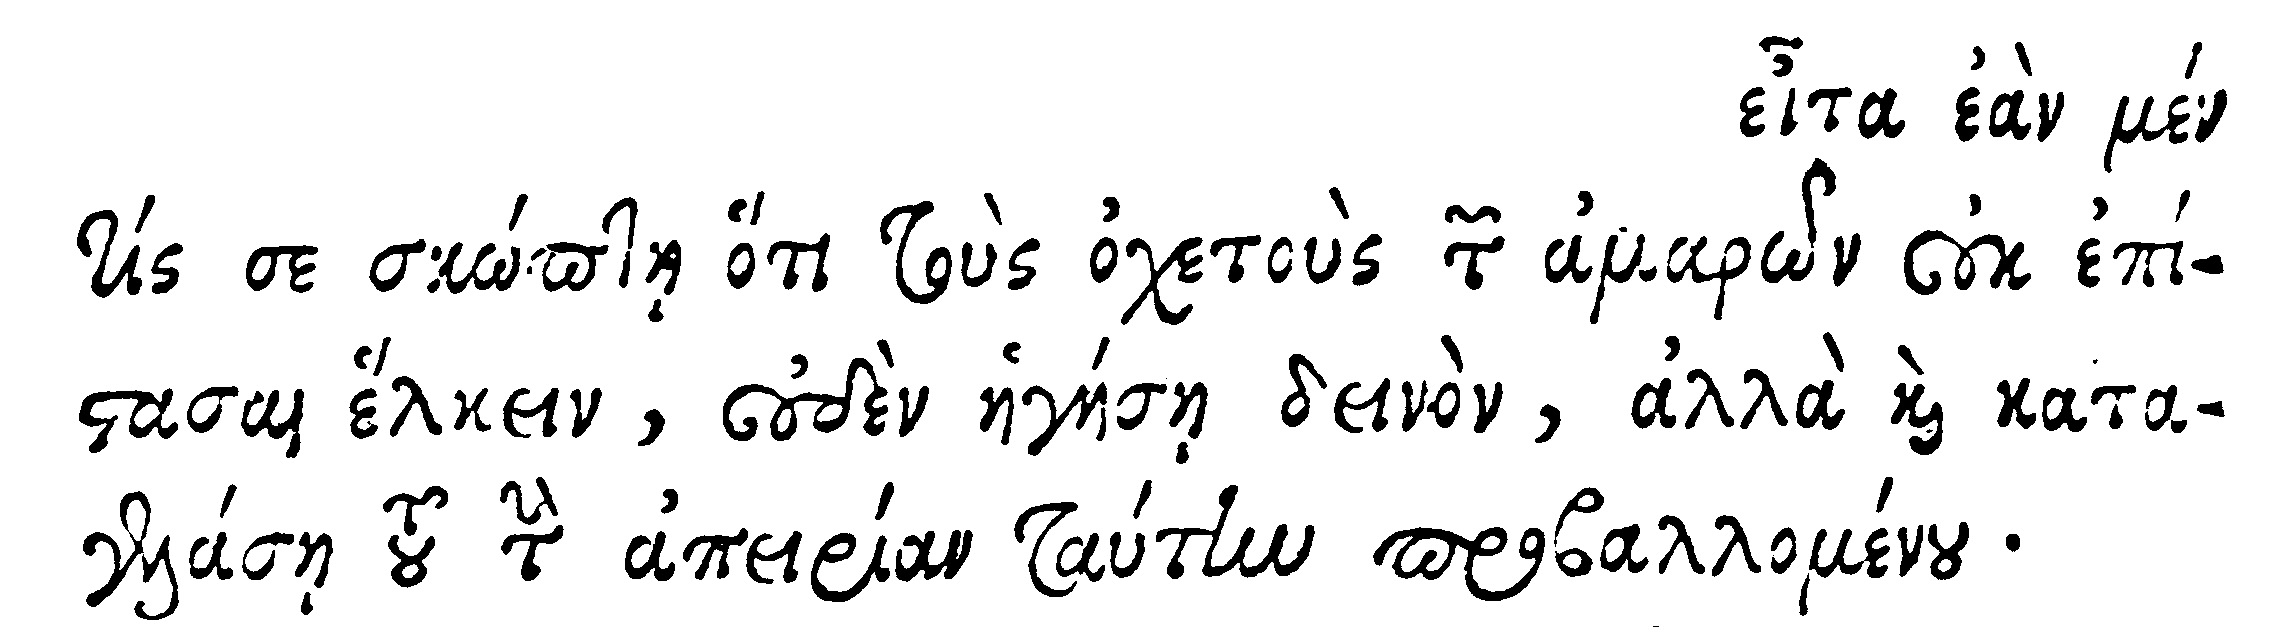 εἶτα ἐὰν μέν
τίς σε σκώπτῃ ὅτι τοὺς ὀχετοὺς τῶν ἀμαρῶν οὐκ ἐπί-
στασαι ἕλκειν, οὐδὲν ἡγήσῃ δεινὸν, ἀλλὰ καὶ κατα-
γελάσῃ τοῦ τὴν ἀπειρίαν ταύτην προβαλλομένου.